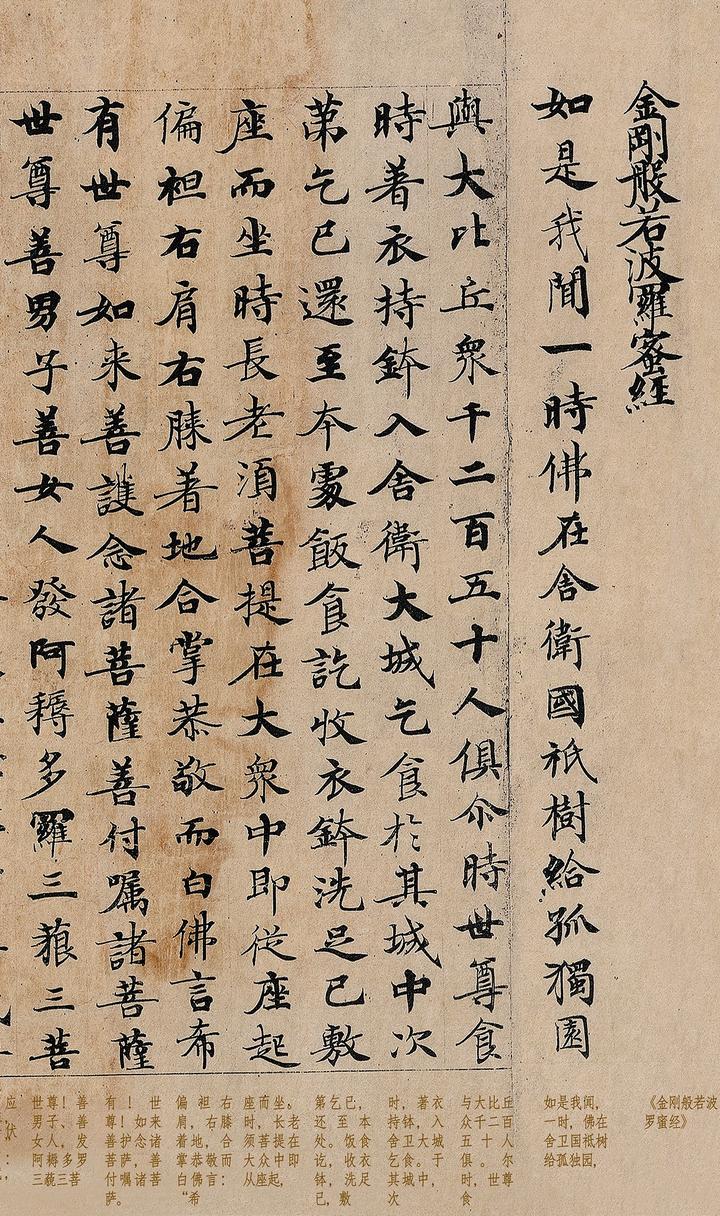 金剛般若波羅蜜經
如是我聞一時佛在舍衛國祇樹給孤獨園
與大比丘衆千二百五十人俱尒時世尊食
時著衣持鉢入舍衛大城乞食於其城中次
第乞已還至本處飯食訖收衣鉢洗足已敷
座而坐時長老須菩提在大衆中即從座起
偏袒右肩右膝著地合掌恭敬而白佛言希
有世尊如来善護念諸菩薩善付嘱諸菩薩
世尊善男子善女人發阿耨多羅三藐三菩
《金刚般若波
罗蜜经》
如是我闻，
一时，佛在
舍卫国祇树
给孤独园，
与大比丘
众千二百
五十人
俱。尔
时，世尊
食
时，著衣
持钵，入
舍卫大城
乞食。于
其城中，
次
第乞已，
还至本
处。饭食
讫，收衣
钵，洗足
已，敷
座而坐。
时，长老
须菩提在
大众中即
从座起，
偏袒右
肩，右膝
着地，合
掌恭敬而
白佛言：
“希
有！世
尊！如来
善护念诸
菩萨，善
付嘱诸菩
萨。
世尊！善
男子、善
女人，发
阿耨多罗
三藐三菩
应